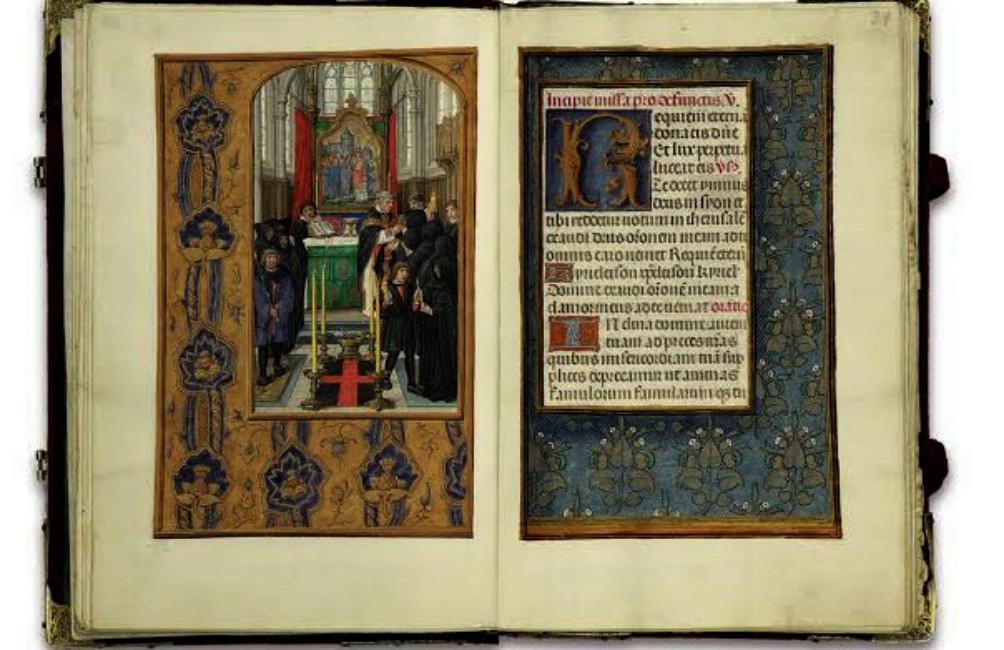 Incipit missa pro defunctis V.
Requiem eterna
dona eis dñe
Et lux perpetua
luceat eis ps.
Te decet ymnus
deus in syon et
tibi reddetur uotum in iherusalē
exaudi deus orōnem meam ad te
omnis caro ueniet Requiē etern̄
Kyrieleison xp̄eleison kyriel
Domine exaudi orōnē meam a
clamor meus ad te ueniat oratio
Inclina domine aurem
tuam ad preces nr̄as
quibus misericordiam tuā sup
plices deprecamur ut animas
famulorum famularumqꝫ tu